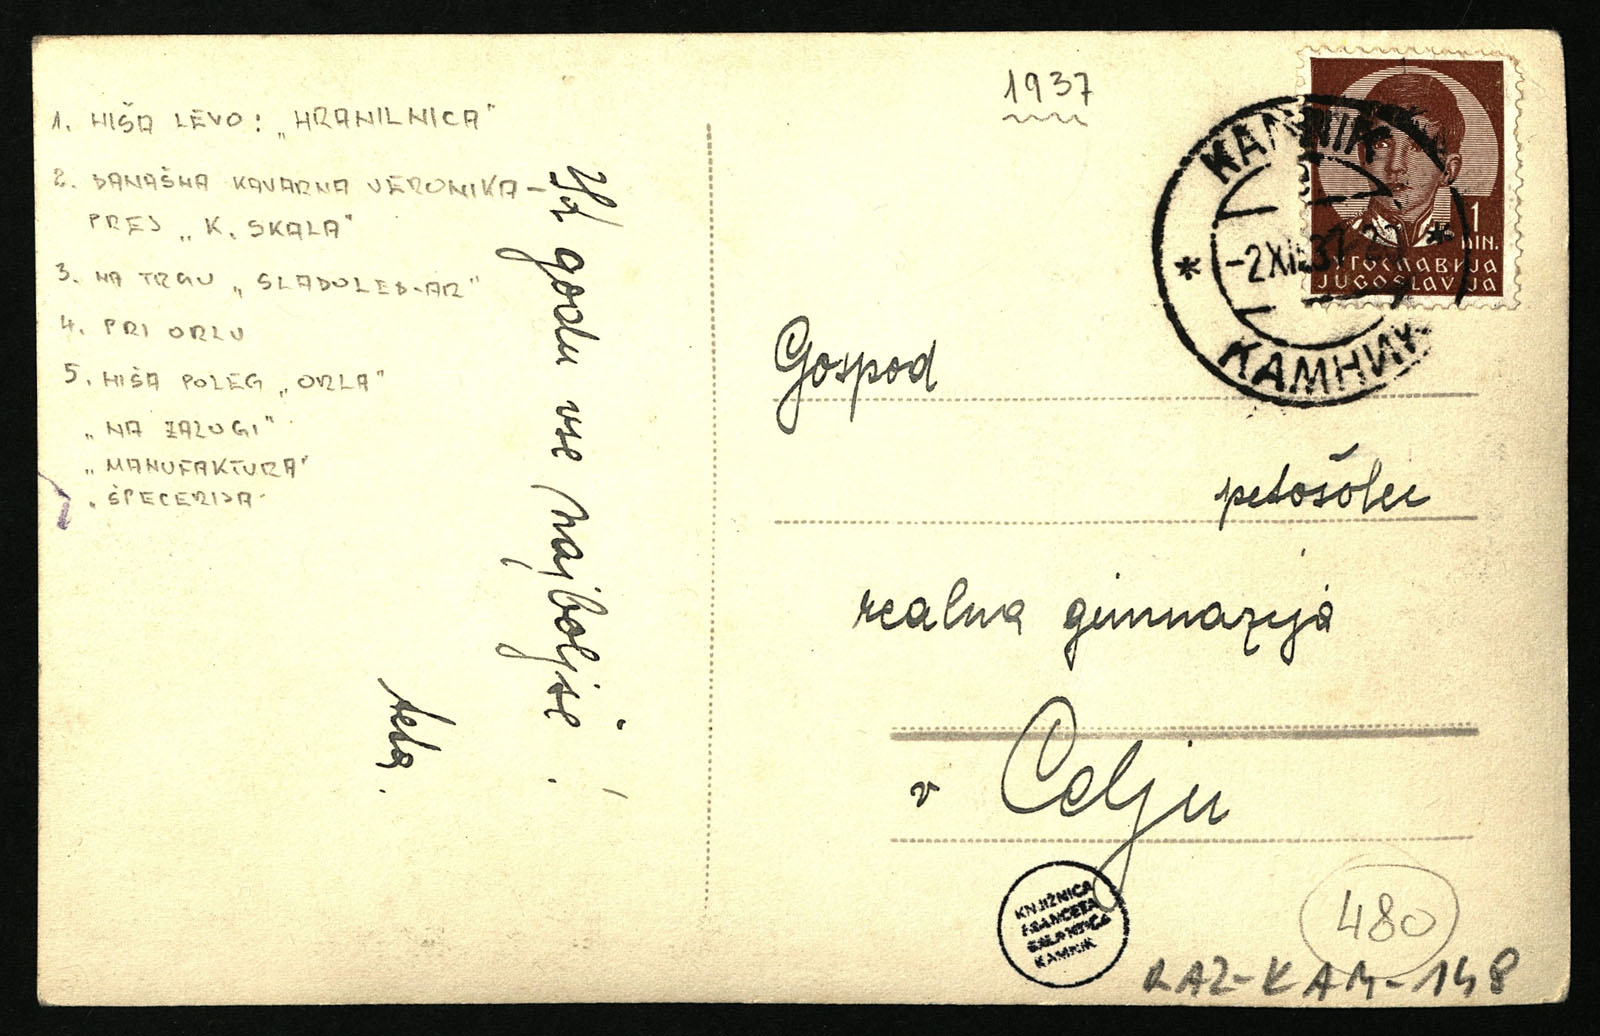 1. HIŠA LEVO: „HRANILNICA"
2. DANAŠNA KAVARNA VERONIKA -
PREJ „K. SKALA"
3. NA TRGU „SLADOLED-AR"
4. PRI ORLU
5. HIŠA POLEG „ORLA"
„NA ZALOGI"
„MANUFAKTURA"
„ŠPECERIJA"
K godu vse najboljše!
teta.
1937
KAMNIK
-2 XII 37
КАМНИК
1
DIN.
ЈУГОСЛАВИЈА
JUGOSLAVIJA
Gospod
petošolec
realna gimnazija
v Celju
KNJIŽNICA
FRANCETA
BALANTIČA
KAMNIK
480
RAZ-KAM-148